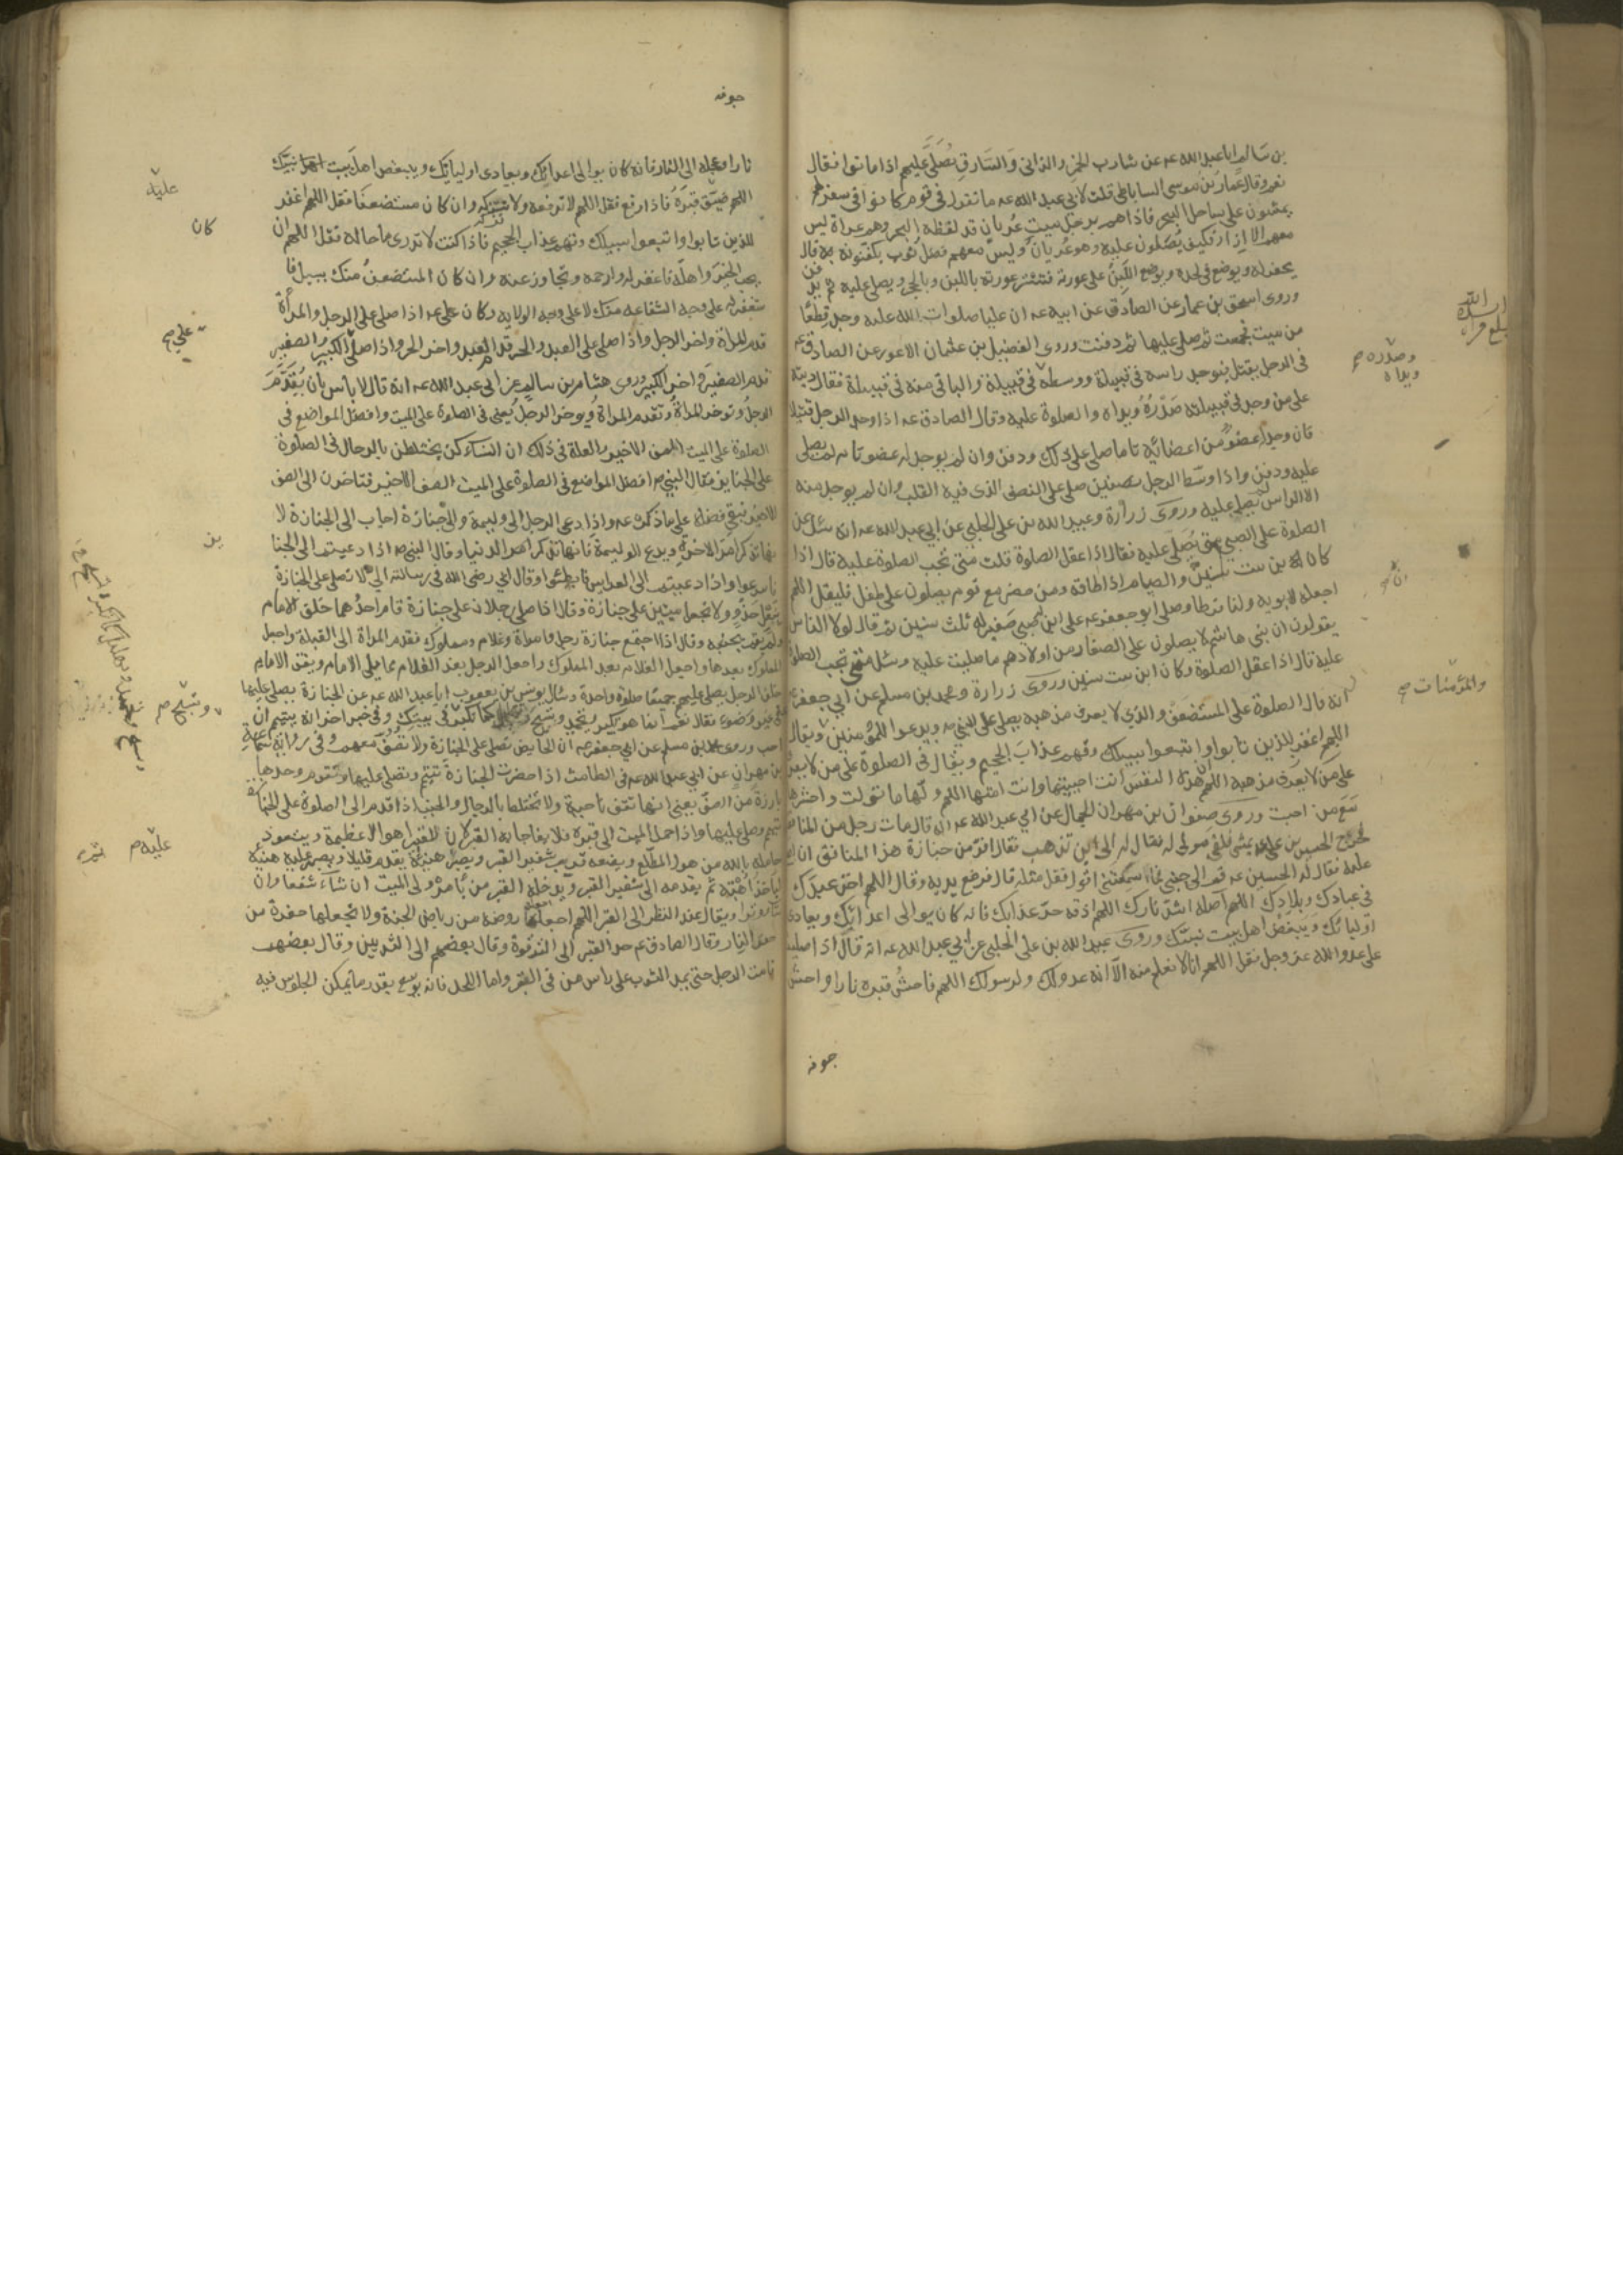 بن سالم ابا عبد الله عه عن شارب الخمر والزانى والسارق يصلى عليهم اذا ماتوا فقال
نعم وقال عمار بن موسى الساباطى قلت لابى عبد الله عه ما تقول فى قوم كانوا فى سفر لهم
يمشون على ساحل البحر فاذا هم برجل ميت عريان قد لفظه البحر وهم عراة ليس
معهم الا ازار فكيف يصلون عليه وهو عريان وليس معهم فضل ثوب يكفنونه به قال
يحفر له ويوضع فى لحده ويوضع اللبن على عورته فتستر عورته باللبن وبالحجر ويصلى عليه ثم يدفن
وروى اسحق بن عمار عن الصادق عن ابيه عه ان عليا صلوات الله عليه وجد قطعا
من ميت فجمعت ثم صلى عليها ثم دفنت وروى الفضيل بن عثمان الاعور عن الصادق عه
فى الرجل يقتل فيوجد راسه فى قبيلة ووسطه فى قبيلة والباقى منه فى قبيلة فقال ديته
على من وجد فى قبيلته صدره ويداه والصلوة عليه وقال الصادق عه اذا وجد الرجل قتيلا
فان وجد له عضو من اعضائه تاما صلى على ذلك ودفن وان لم يوجد له عضو تام لم يصل
عليه ودفن واذا وسّط الرجل بنصفين صلى على النصف الذى فيه القلب وان لم يوجد منه
الا الراس لم يصل عليه وروى زرارة وعبيد الله بن على الحلبى عن ابى عبد الله عه انه سئل عن
الصلوة على الصبى متى يصلى عليه فقال اذا عقل الصلوة قلت متى تجب الصلوة عليه قال اذا
كان ابن ست سنين والصيام اذا اطاقه ومن حضر مع قوم يصلون على طفل فليقل اللهم
اجعله لابويه ولنا فرطا وصلى ابو جعفر عه على ابن له صبى صغير له ثلث سنين ثم قال لولا الناس
يقولون ان بنى هاشم لا يصلون على الصغار من اولادهم ما صليت عليه وسئل متى تجب الصلوة
عليه قال اذا عقل الصلوة وكان ابن ست سنين وروى زرارة ومحمد بن مسلم عن ابى جعفر عه
انه قال الصلوة على المستضعف والذى لا يعرف مذهبه يصلى على النبى ص ويدعوا للمؤمنين ويقال
اللهم اغفر للذين تابوا واتبعوا سبيلك وقهم عذاب الجحيم ويقال فى الصلوة على من لا يعرف
على من لا يعرف مذهبه اللهم ان هذه النفس انت احييتها وانت امتها اللهم ولها ما تولت واحشرها
مع من احبت وروى صفوان بن مهران الجمال عن ابى عبد الله عه انه قال مات رجل من المنافقين
فخرج الحسين بن على عه يمشى فلقى مولى له فقال له الى اين تذهب فقال افر من جنازة هذا المنافق ان اصلى
عليه فقال له الحسين عه قم الى جنبى فما سمعتنى اقول فقل مثله قال فرفع يديه وقال اللهم اخز عبدك
فى عبادك وبلادك اللهم اصله اشد نارك اللهم اذقه حر عذابك فانه كان يوالى اعدائك ويعادى
اوليائك ويبغض اهل بيت نبيك وروى عبيد الله بن على الحلبى عن ابى عبد الله عه انه قال اذا صليت
على عدو الله عز وجل فقل اللهم انا لا نعلم منه الا انه عدو لك ولرسولك اللهم فاحش قبره نارا واحش
جوفه
وصدره
ويداه
والمؤمنات صح
جوفه
نارا وعجله الى النار فانه كان يوالى اعدائك ويعادى اوليائك ويبغض اهل بيت نبيك
اللهم ضيق قبره فاذا رفع فقل اللهم لا ترفعه ولا تزكه وان كان مستضعفا فقل اللهم اغفر
للذين تابوا واتبعوا سبيلك وقهم عذاب الجحيم فاذا كنت لا تدرى ما حاله فقل اللهم ان
يحب الخير واهله فاغفر له وارحمه وتجاوز عنه وان كان المستضعف منك بسبيل فا
ستغفر له على وجه الشفاعه منك لا على وجه الولايه وكان على عه اذا صلى على الرجل والمراة
قدم المراة واخر الرجل واذا صلى على العبد والحر قدم العبد واخر الحر واذا صلى الكبير والصغير
قدم الصغير واخر الكبير وروى هشام بن سالم عن ابى عبد الله عه انه قال لا بأس بان يقدم
الرجل وتوخر المراة وتقدم المراة ويوخر الرجل يعنى فى الصلوة على الميت وافضل المواضع فى
الصلوة على الميت الصف الاخير والعلة فى ذلك ان النساء كن يختلطن بالرجال فى الصلوة
على الجنايز فقال النبى ص افضل المواضع فى الصلوة على الميت الصف الاخير فتاخرن الى الصف
الاخير فبقى فضله على ما ذكره عه واذا دعى الرجل الى وليمة والى جنازة اجاب الى الجنازة لا
نها تذكر امر الاخرة ويدع الوليمة فانها تذكر امر الدنيا وقال النبى ص اذا دعيتم الى الجنا
فاسرعوا واذا دعيتم الى العرايس فابطئوا وقال ابى رضى الله فى رسالته الى لا تصل على الجنازة
بنعل حذو ولا تجعل ميتين على جنازة وقال اذا صلى رجلان على جنازة قام احدهما خلف الامام
ولم يقم بجنبه وقال اذا اجتمع جنازة رجل وامراة وغلام ومملوك فقدم المراة الى القبلة واجعل
المملوك بعدها واجعل الغلام بعد المملوك واجعل الرجل بعد الغلام مما يلى الامام ويقف الامام
خلف الرجل يصلى عليهم جميعا صلوة واحدة وسال يونس بن يعقوب ابا عبد الله عه عن الجنازة يصلى عليها
على غير وضوء فقال نعم انما هو تكبير وتحميد وتسبيح وتهليل كما تكبر فى بيتك وفى خبر اخر انه يتيمم ان
احب وروى محمد بن مسلم عن ابى جعفر عه ان الحايض تصلى على الجنازة ولا تصف معهم وفى رواية سماعة
بن مهران عن ابى عبد الله عه فى الطامث اذا حضرت الجنازة تتيمم وتصلى عليها وتقوم وحدها
بارزة من الصف يعنى انها تقف ناحية ولا تختلط بالرجال والجنب اذا قدم الى الصلوة على الجنازة
تيمم وصلى عليها واذا حمل الميت الى قبره فلا يفاجا به القبر لان للقبر اهوالا عظيمة ويتعوذ
حامله بالله من هول المطلع ويضعه قرب شفير القبر ويصبر هنيئة ثم يقدم قليلا ويصبر عليه هنيئة
ليأخذ اهبته ثم يقدمه الى شفير القبر ويدخله القبر من يأمره ولى الميت ان شاء شفعا وان
شاء وترا ويقال عند النظر الى القبر اللهم اجعلها روضة من رياض الجنة ولا تجعلها حفرة من
حفر النيران وقال الصادق عه حد القبر الى الترقوة وقال بعضهم الى الثديين وقال بعضهم
قامة الرجل حتى يمد الثوب على راس من فى القبر واما اللحد فانه يوسع بقدر ما يمكن الجلوس فيه
عليه
كان
على صح
بن
وتسبيح ص
عليه ص